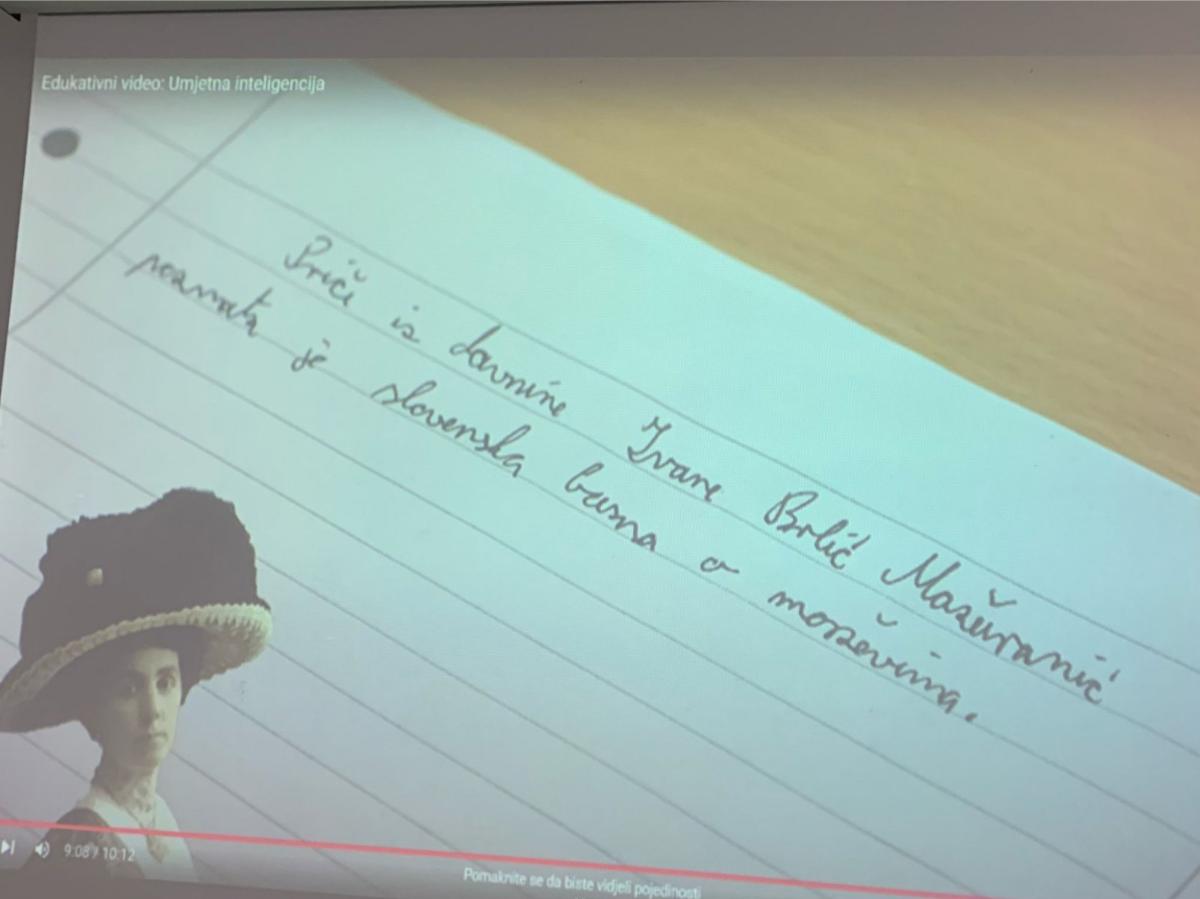 Edukativni video: Umjetna inteligencija
Priči iz davnine Ivane Brlić Mažuranić
poznata je slovenska basna o morževima.
9:08 / 10:12
Pomaknite se da biste vidjeli pojedinosti